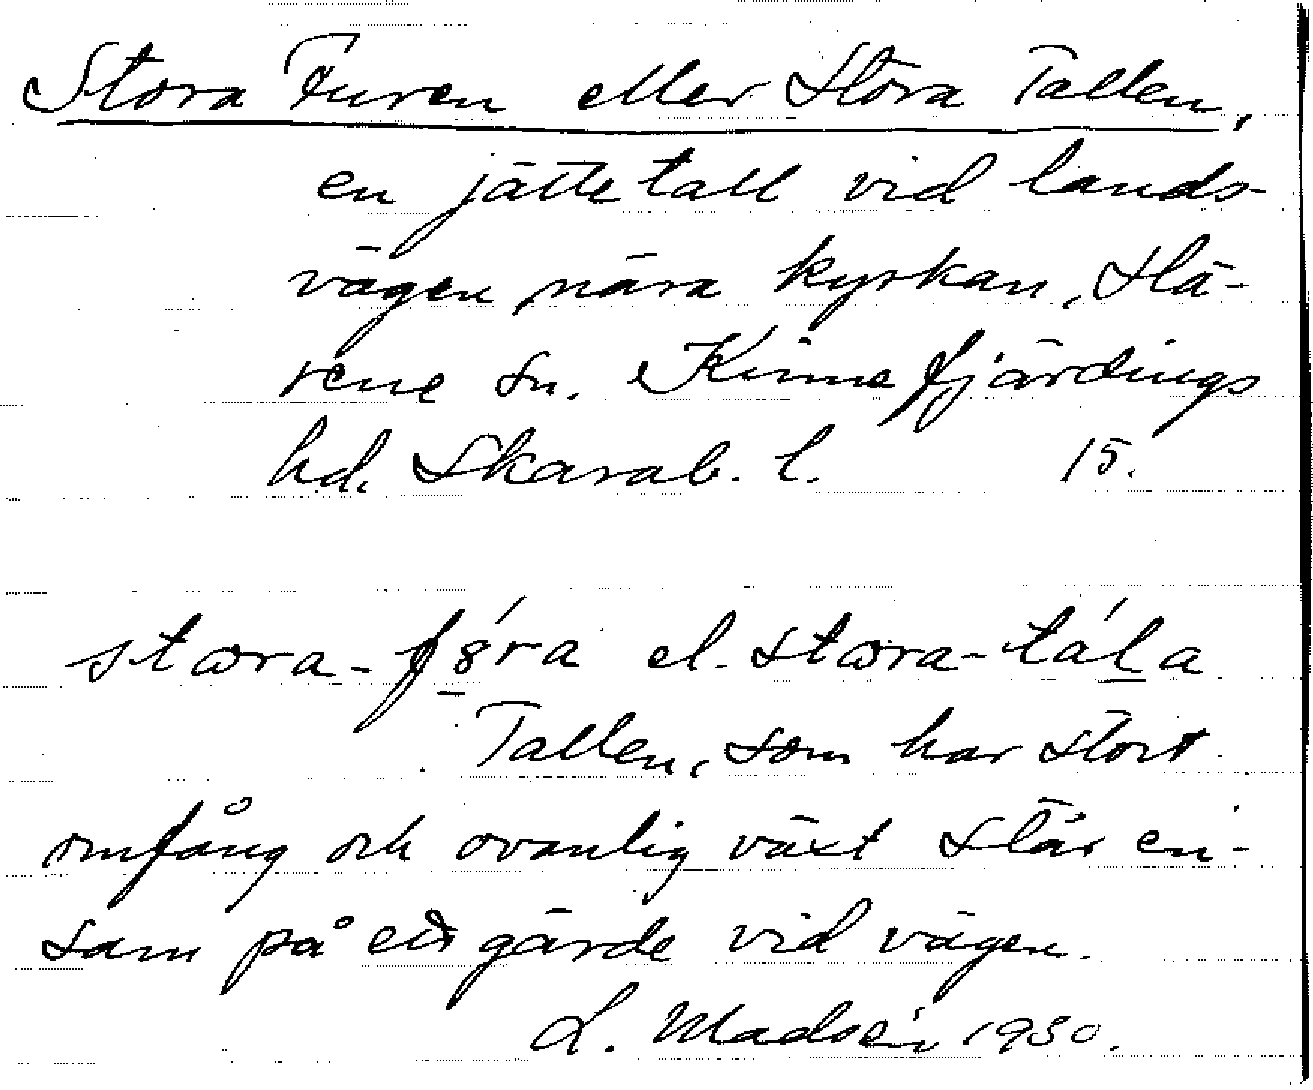 Stora Furen eller Stora Tallen,
en jättetall vid lands-
vägen, nära kyrkan, Slä-
rene sn. Kinnefjärdings
hd. Skarab. l. 15.
stœra-fɣ́ra el. stœra-tál̲a
Tallen, som har stort
omfång och ovanlig växt står en-
sam på ett gärde vid vägen.
L. Madsén 1930.